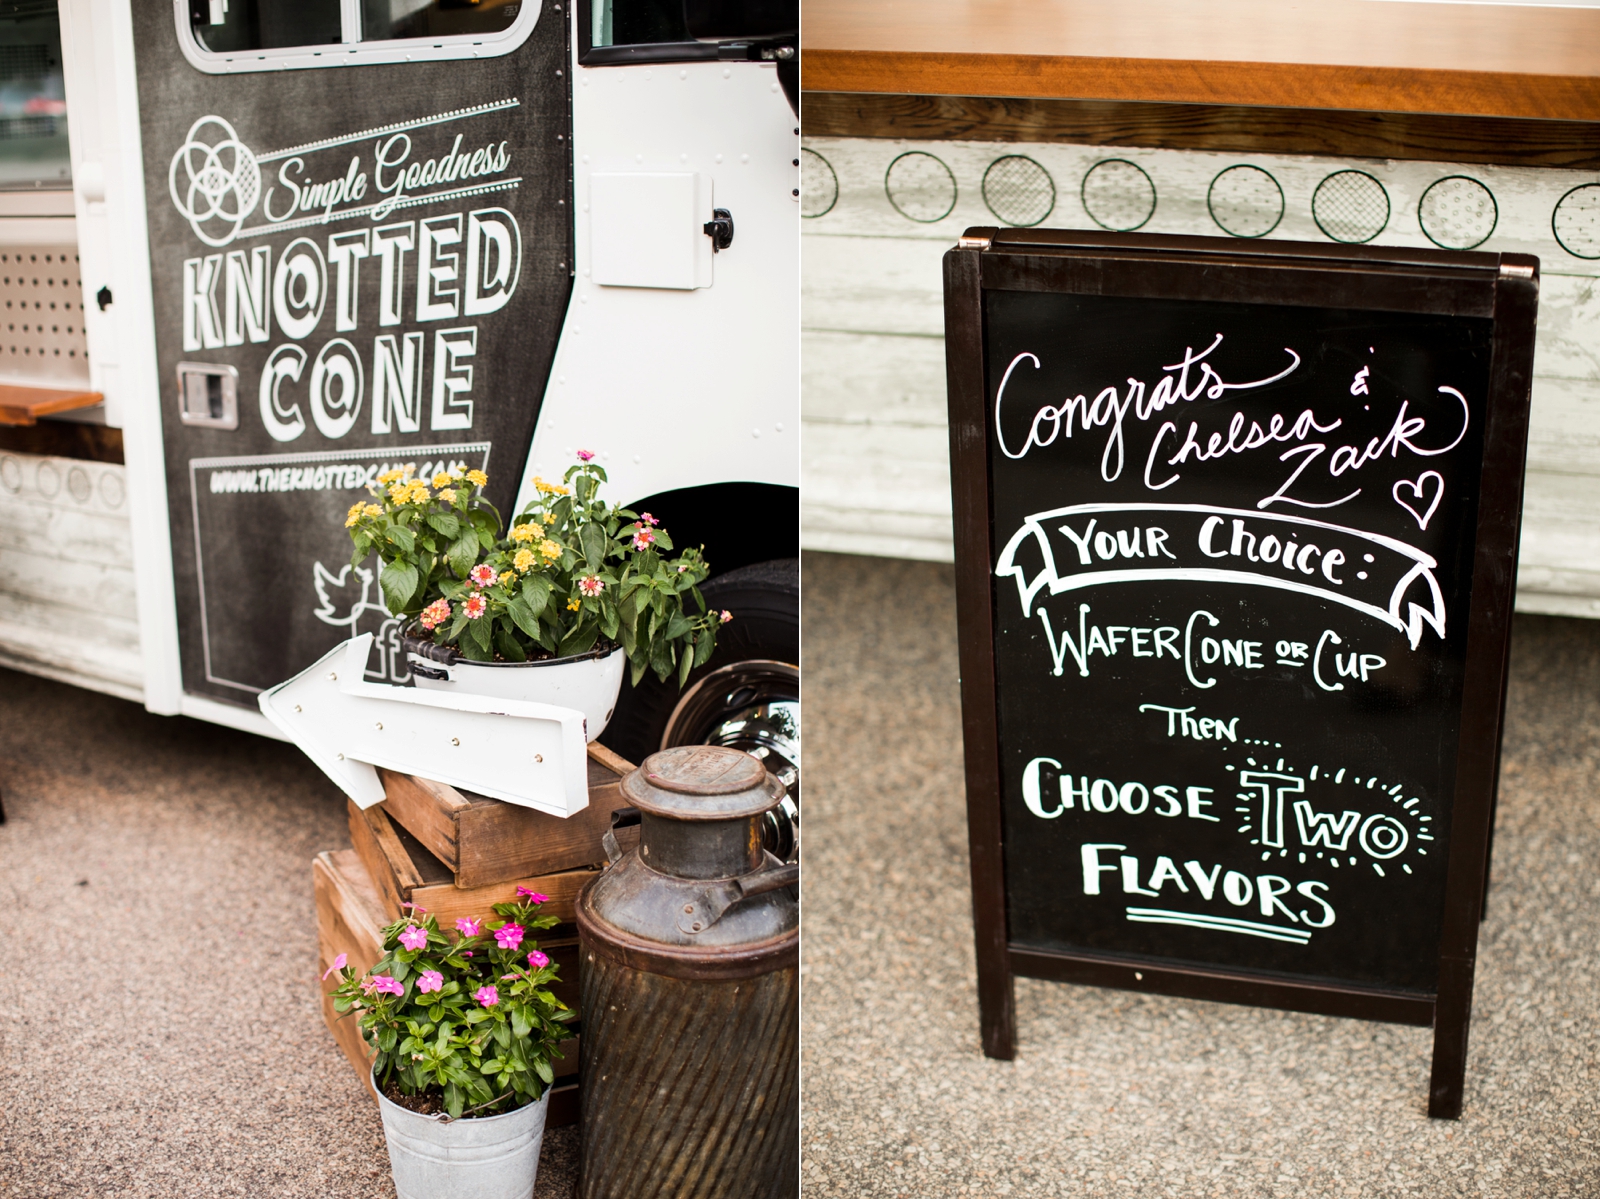 Simple Goodness
KNOTTED
CONE
WWW.THEKNOTTEDCONE.COM
f
Congrats
Chelsea &
Zack
Your Choice:
WAFER CONE OR CUP
Then....
CHOOSE TWO
FLAVORS